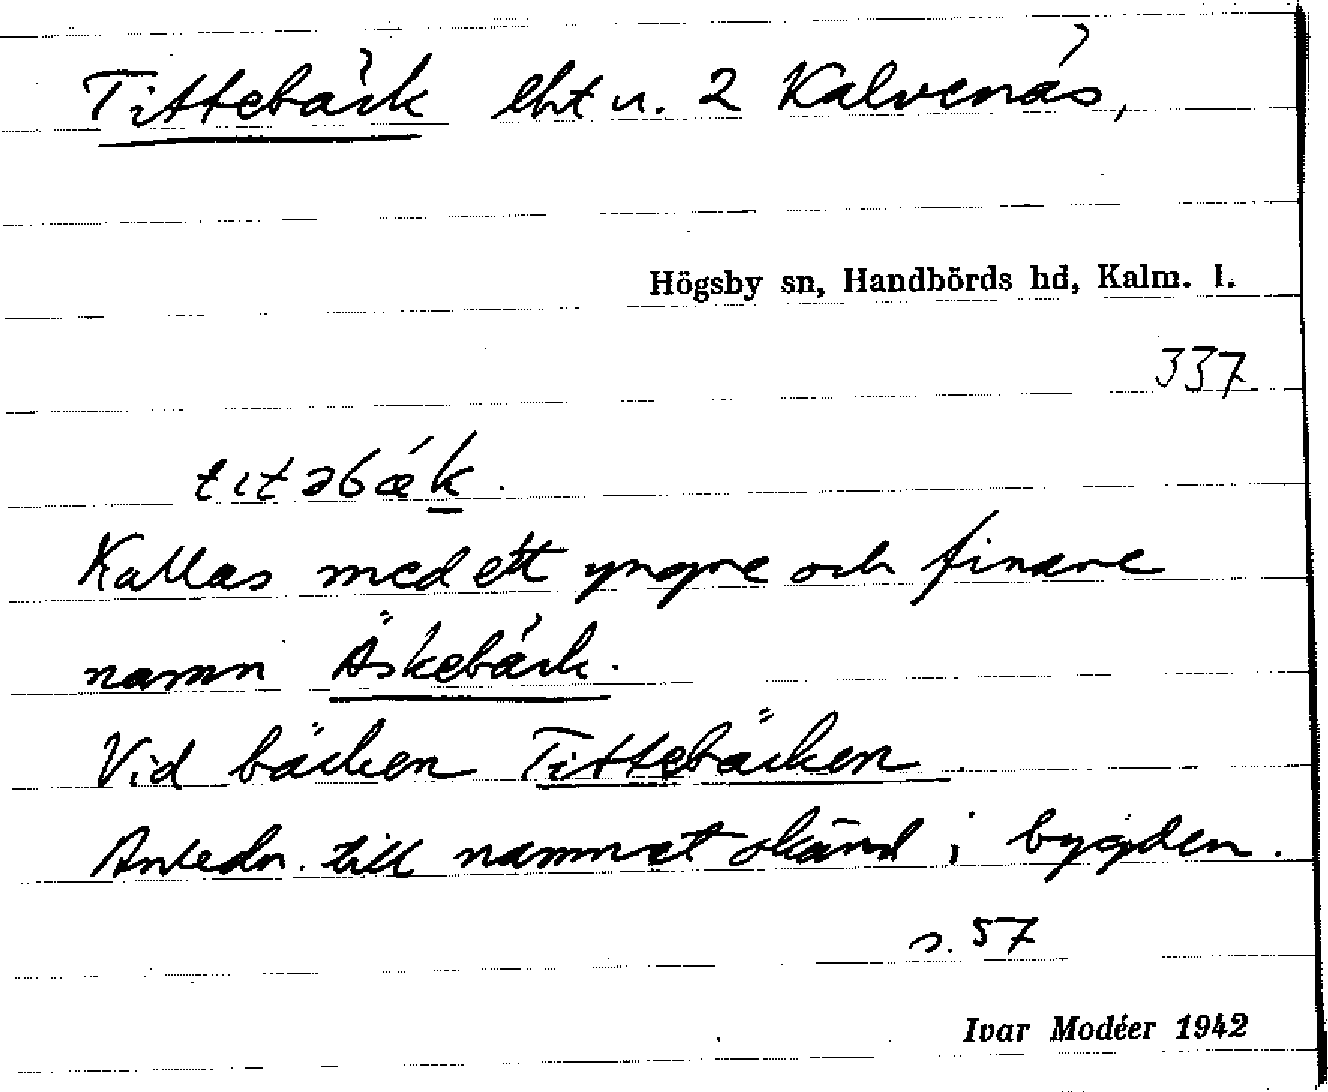 Tittebäck lht u. 2 Kalvenäs,
Högsby sn, Handbörds hd, Kalm. l.
337
tıtəbǽk.
Kallas med ett yngre och finare
namn Äskebäck.
Vid bäcken Tittebäcken
Anledn. till namnet okänd i bygden.
s. 57
Ivar Modéer 1942